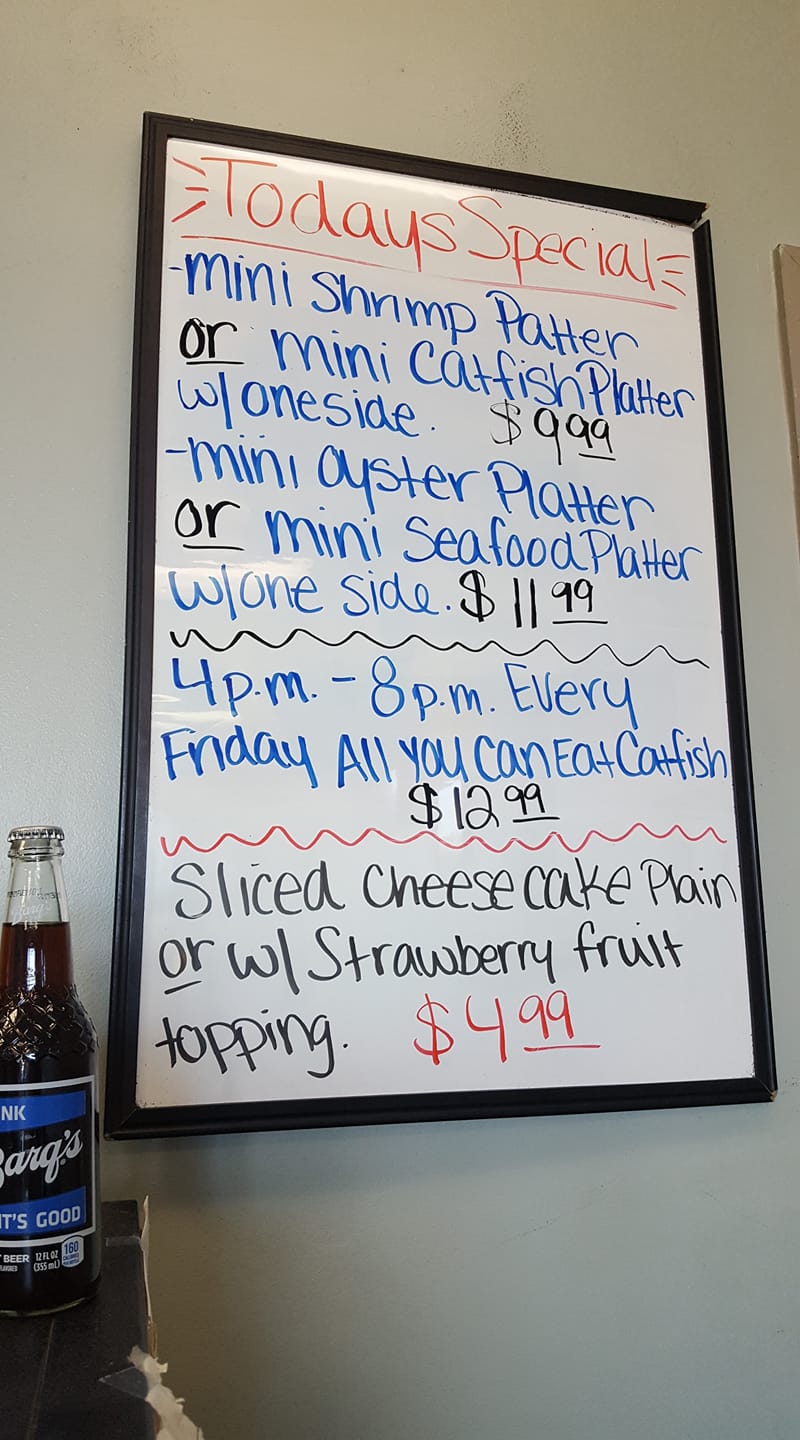 Todays Special
-mini Shrimp Patter
or mini Catfish Platter
w/ one side. $9.99
-mini Oyster Platter
or mini Seafood Platter
w/ one side. $11.99
4p.m. - 8p.m. Every
Friday All you Can Eat Catfish
$12.99
Sliced Cheese cake Plain
or w/ Strawberry fruit
topping. $4.99
NK
Barq's
IT'S GOOD
BEER 12 FL OZ
(355 mL)
160